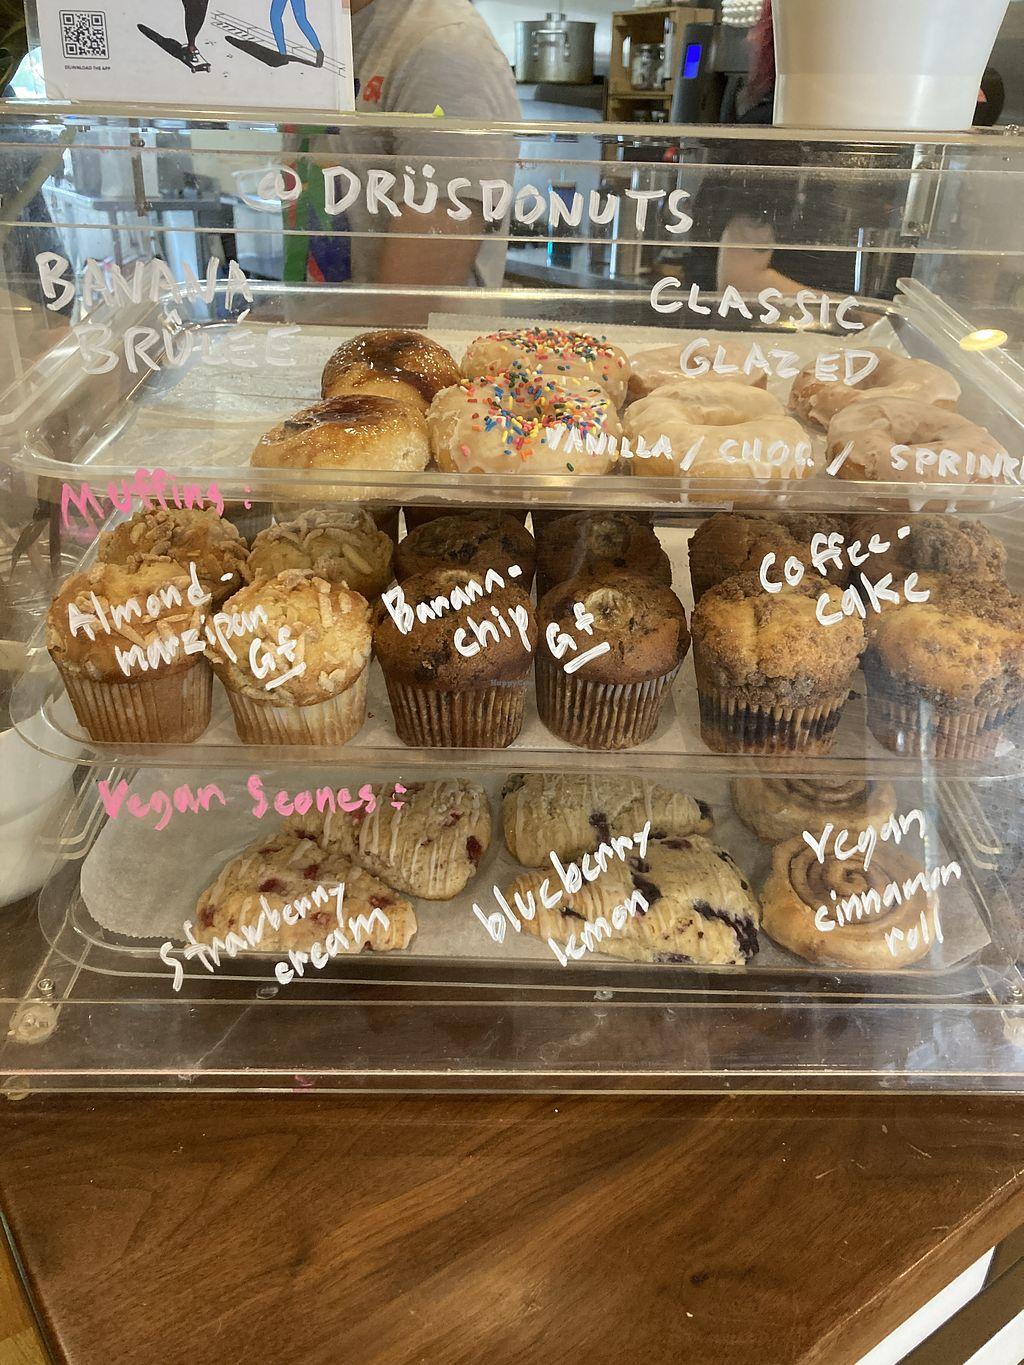 DOWNLOAD THE APP
@DRÜSDONUTS
BANANA
BRÛLÉE
CLASSIC
GLAZED
VANILLA / CHOC. / SPRINK
Muffins:
Almond-
marzipan
Gf
Banana-
chip
Gf
Coffee-
cake
Vegan Scones:
Strawberry
cream
blueberry
lemon
Vegan
cinnamon
roll
HappyCow